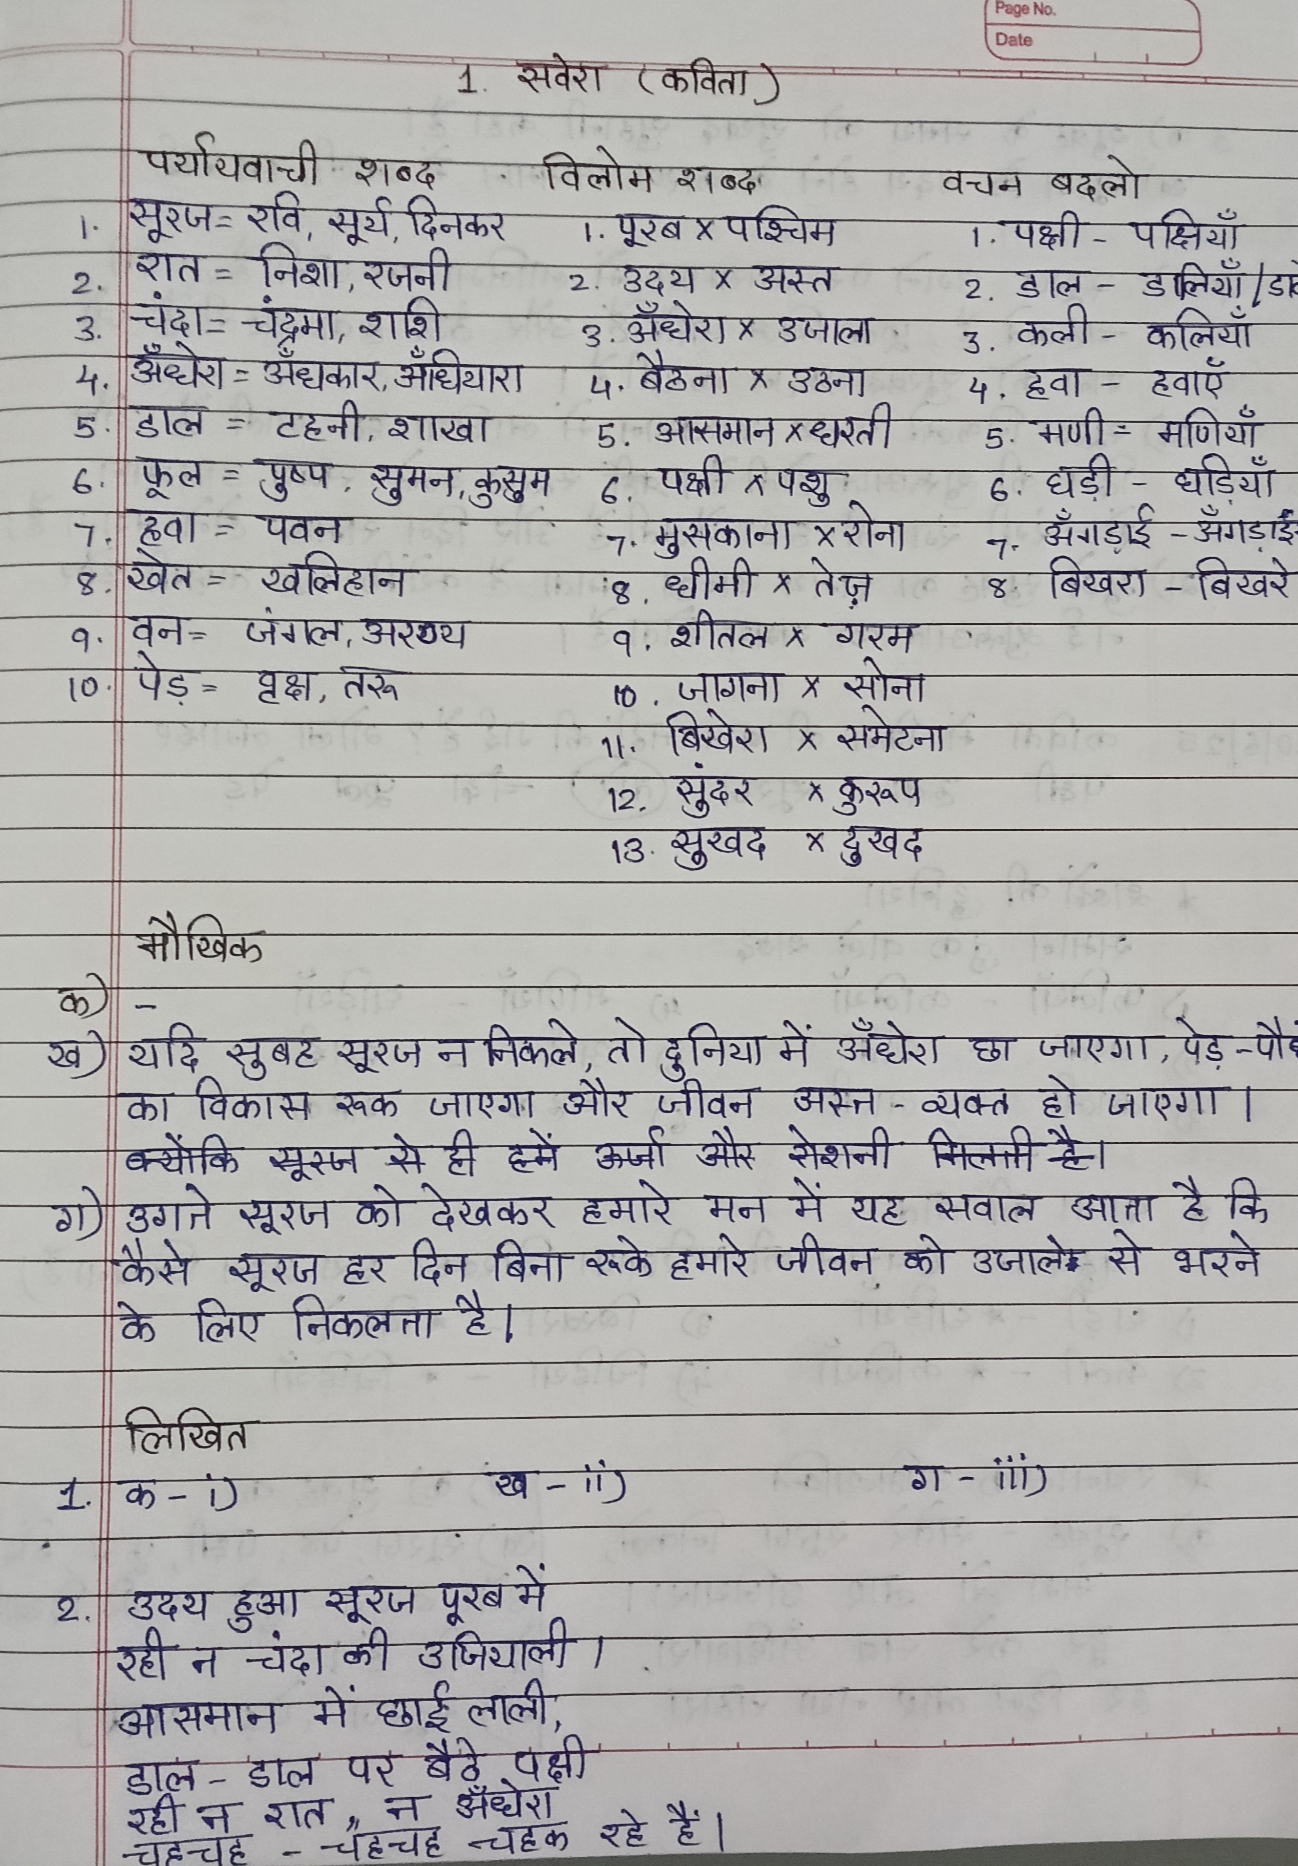 Page No.
Date
1. सवेरा (कविता)
पर्यायवाची शब्द विलोम शब्द वचन बदलो
1. सूरज = रवि, सूर्य, दिनकर 1. पूरब x पश्चिम 1. पक्षी - पक्षियाँ
2. रात = निशा, रजनी 2. उदय x अस्त 2. डाल - डालियाँ/
3. चंदा = चंद्रमा, शशि 3. अँधेरा x उजाला 3. कली - कलियाँ
4. अँधेरा = अँधकार, अँधियारा 4. बैठना x उठना 4. हवा - हवाएँ
5. डाल = टहनी, शाखा 5. आसमान x धरती 5. मणी = मणियाँ
6. फूल = पुष्प, सुमन, कुसुम 6. पक्षी x पशु 6. घड़ी - घड़ियाँ
7. हवा = पवन 7. मुसकाना x रोना 7. अँगड़ाई -
8. खेत = खलिहान 8. धीमी x तेज़ 8. बिखरा - बिखरे
9. वन = जंगल, अरण्य 9. शीतल x गरम
10. पेड़ = वृक्ष, तरू 10. जागना x सोना
11. बिखेरा x समेटना
12. सुंदर x कुरूप
13. सुखद x दुखद
मौखिक
क) -
ख) यदि सुबह सूरज न निकले, तो दुनिया में अँधेरा छा जाएगा, पेड़ -
का विकास रूक जाएगा और जीवन अस्त - व्यक्त हो जाएगा।
क्योंकि सूरज से ही हमें ऊर्जा और रोशनी मिलती है।
ग) उगते सूरज को देखकर हमारे मन में यह सवाल आता है कि
कैसे सूरज हर दिन बिना रूके हमारे जीवन को उजाले से भरने
के लिए निकलता है।
लिखित
1. क - i) ख - ii) ग - iii)
2. उदय हुआ सूरज पूरब में
रही न चंदा की उजियाली।
आसमान में छाई लाली,
डाल - डाल पर बैठे पक्षी
रही न रात, न अँधेरा
चहचह - चहचह चहक रहे हैं।